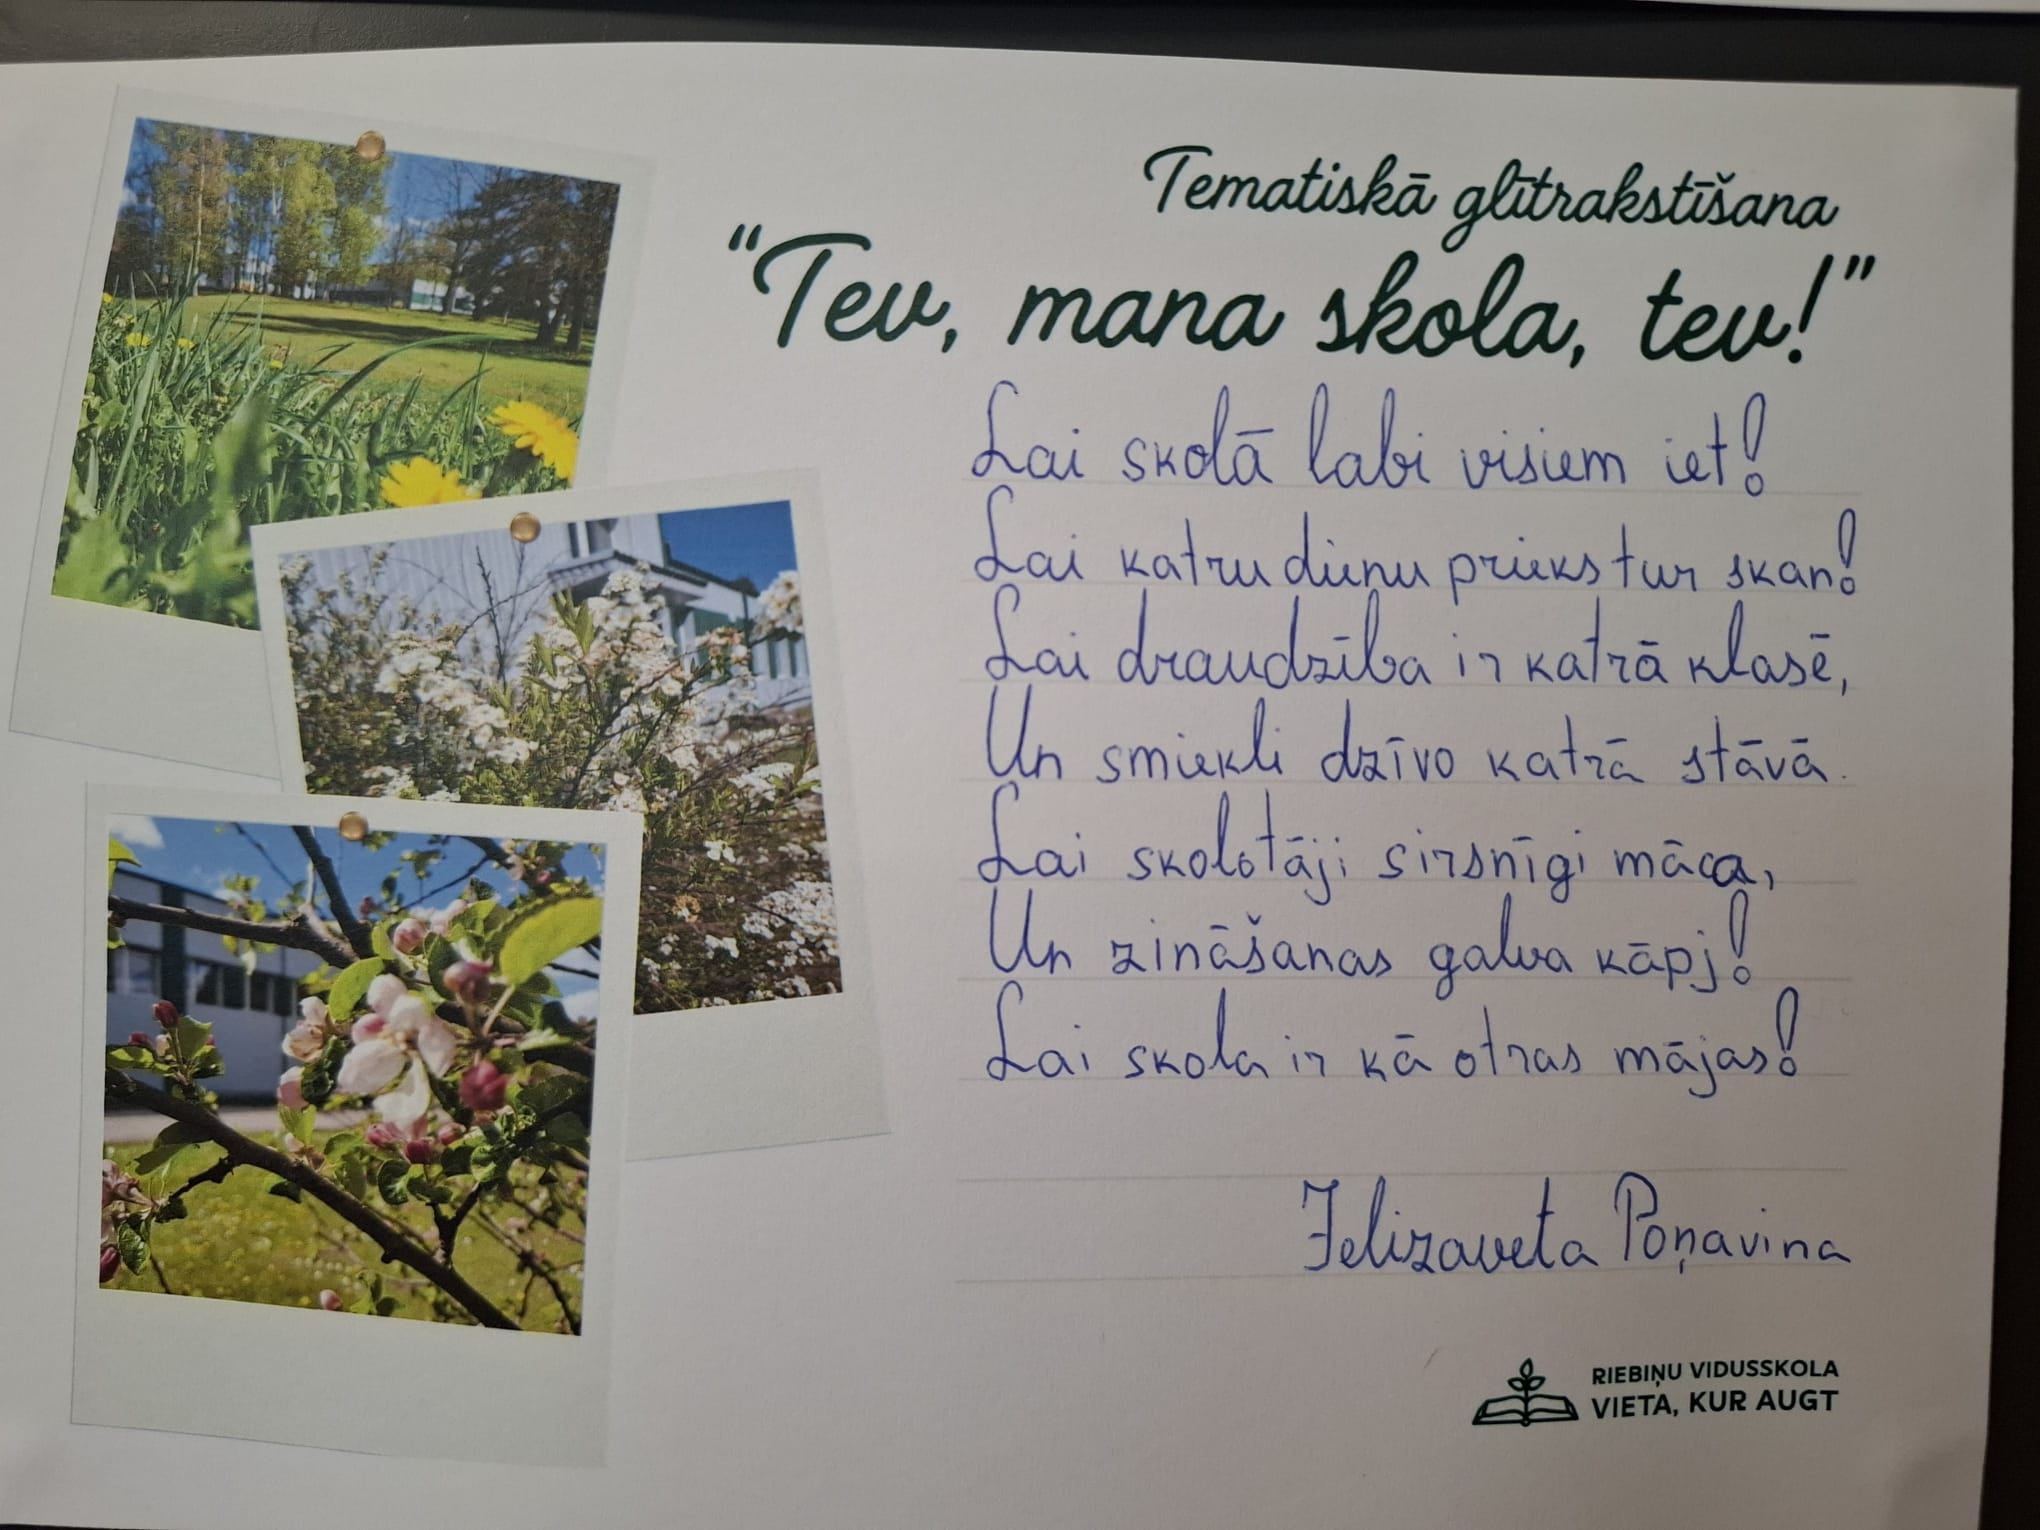 Tematiskā glītrakstīšana
“Tev, mana skola, tev!”
Lai skolā labi visiem iet!
Lai katru dienu prieks tur skan!
Lai draudzība ir katrā klasē,
Un smiekli dzīvo katrā stāvā.
Lai skolotāji sirsnīgi māca,
Un zināšanas galva kāpj!
Lai skola ir kā otras mājas!
Jelizaveta Poņavina
RIEBIŅU VIDUSSKOLA
VIETA, KUR AUGT